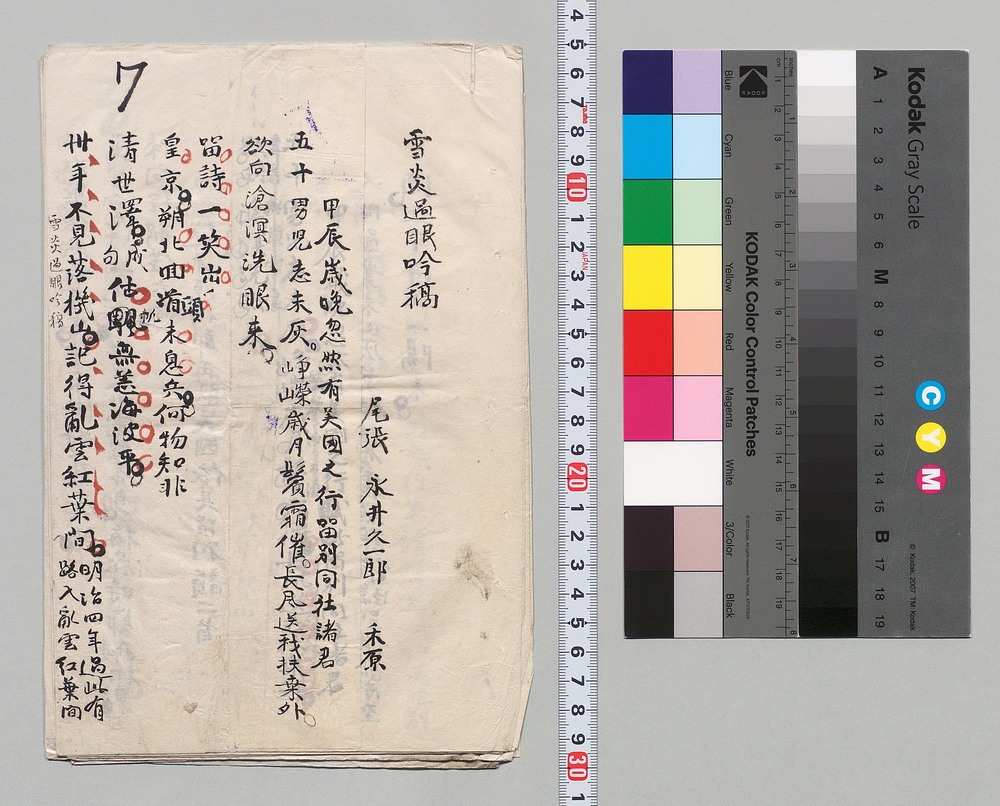 雪炎過眼吟稿
尾張 永井久一郎 禾原
甲辰歳晩忽然有美国之行留別同社諸君
五十男児志未灰。崢嶸歳月鬢霜催。長風送我扶桑外。
欲向滄溟洗眼来。
留詩一笑出
皇京朔北回頭未息兵何物知非
清世澤
無恙海波平
卅年不見落機山記得亂雲紅葉間 明治四年過此有
路入亂雲紅葉間
雪炎過眼吟稿
7
4
5
6
7
8
9
10
1
2
3
4
5
6
7
8
9
20
1
2
3
4
5
6
7
8
9
30
1
JAPAN
KODAK Color Control Patches
Blue
Cyan
Green
Yellow
Red
Magenta
White
3/Color
Black
Kodak
inches
cm
1
2
3
4
5
6
7
8
1
2
3
4
5
6
7
8
9
10
11
12
13
14
15
16
17
18
19
Kodak Gray Scale
A
1
2
3
4
5
6
M
8
9
10
11
12
13
14
15
B
17
18
19
C
Y
M
© Kodak, 2007 TM: Kodak